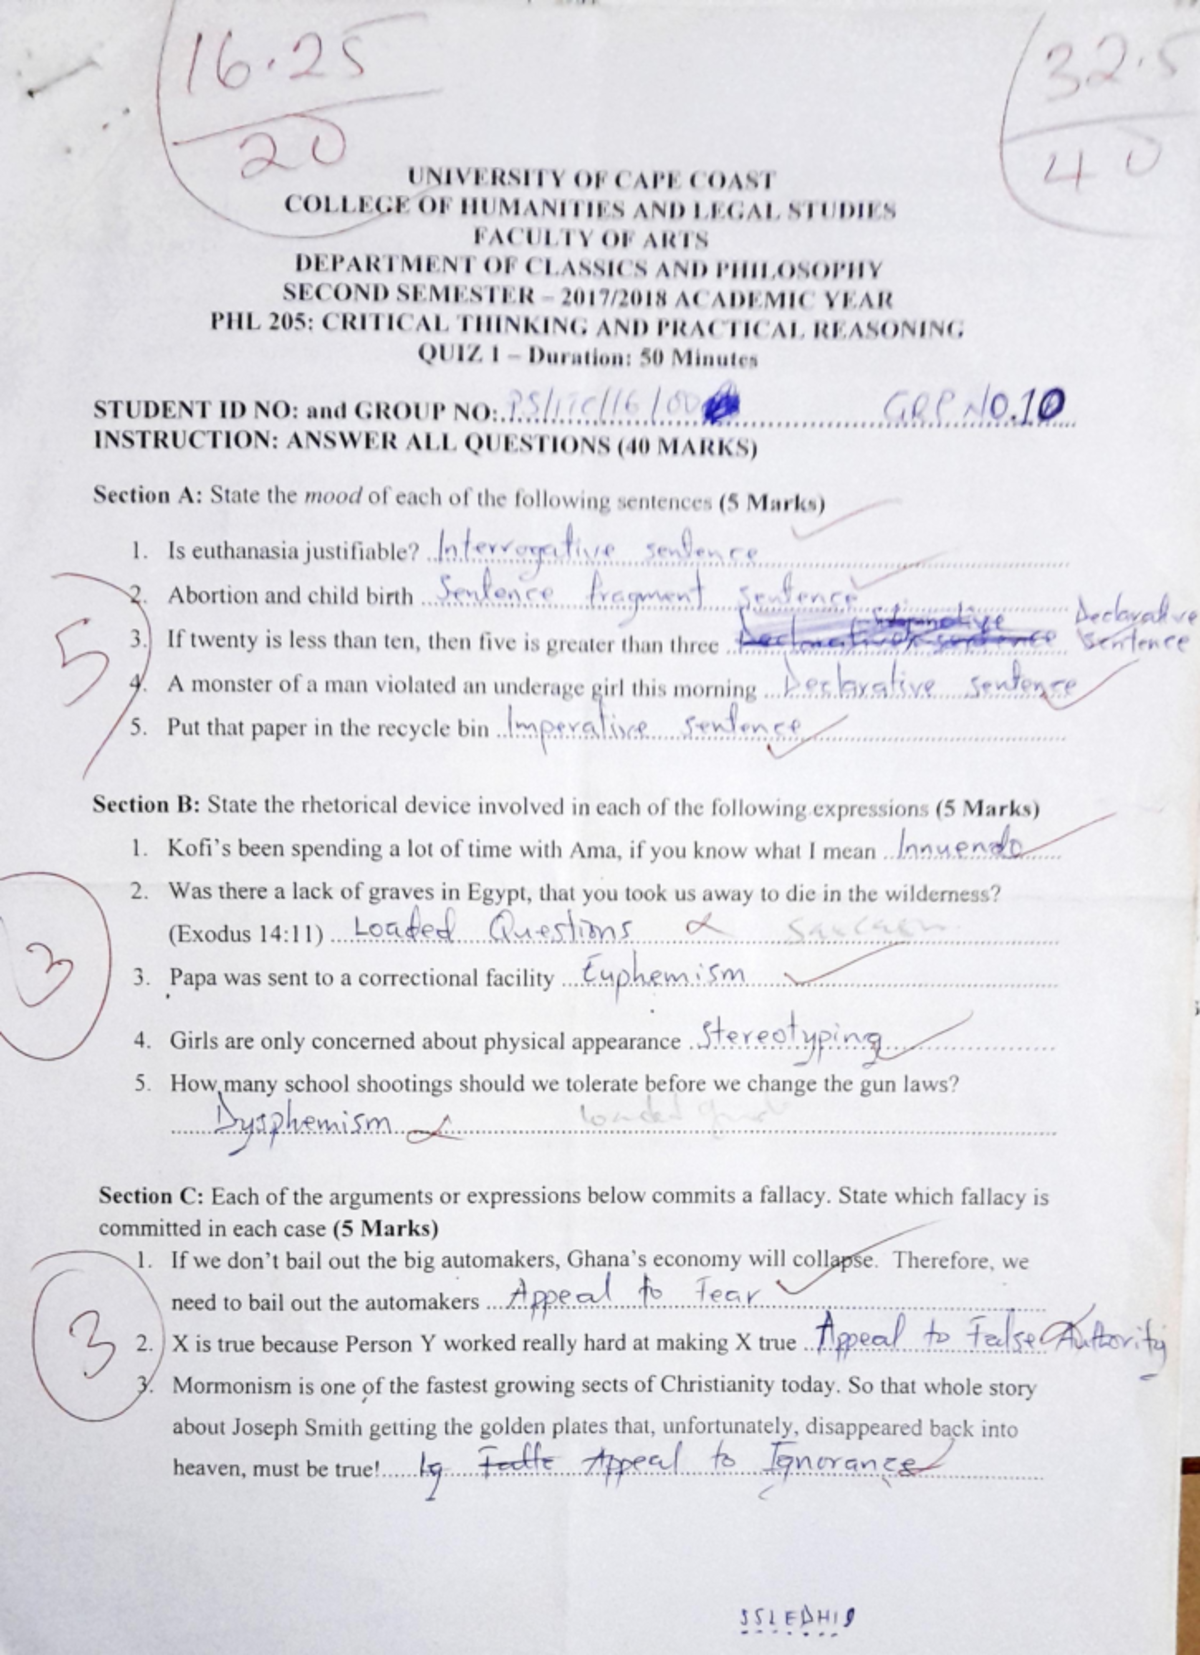 16.25
20
32.5
40
UNIVERSITY OF CAPE COAST
COLLEGE OF HUMANITIES AND LEGAL STUDIES
FACULTY OF ARTS
DEPARTMENT OF CLASSICS AND PHILOSOPHY
SECOND SEMESTER – 2017/2018 ACADEMIC YEAR
PHL 205: CRITICAL THINKING AND PRACTICAL REASONING
QUIZ 1 – Duration: 50 Minutes
STUDENT ID NO: and GROUP NO: GRP NO.10
INSTRUCTION: ANSWER ALL QUESTIONS (40 MARKS)
Section A: State the mood of each of the following sentences (5 Marks)
1. Is euthanasia justifiable? Interrogative sentence
2. Abortion and child birth Sentence fragment sentence
3. If twenty is less than ten, then five is greater than three Declarative sentence
4. A monster of a man violated an underage girl this morning Declarative sentence
5. Put that paper in the recycle bin Imperative sentence
5
Section B: State the rhetorical device involved in each of the following expressions (5 Marks)
1. Kofi's been spending a lot of time with Ama, if you know what I mean Innuendo
2. Was there a lack of graves in Egypt, that you took us away to die in the wilderness?
(Exodus 14:11) Loaded Questions
3. Papa was sent to a correctional facility Euphemism
3
4. Girls are only concerned about physical appearance Stereotyping
5. How many school shootings should we tolerate before we change the gun laws?
Dysphemism
Section C: Each of the arguments or expressions below commits a fallacy. State which fallacy is
committed in each case (5 Marks)
1. If we don't bail out the big automakers, Ghana's economy will collapse. Therefore, we
need to bail out the automakers Appeal to Fear
2. X is true because Person Y worked really hard at making X true Appeal to False Authority
3
3. Mormonism is one of the fastest growing sects of Christianity today. So that whole story
about Joseph Smith getting the golden plates that, unfortunately, disappeared back into
heaven, must be true! Appeal to Ignorance